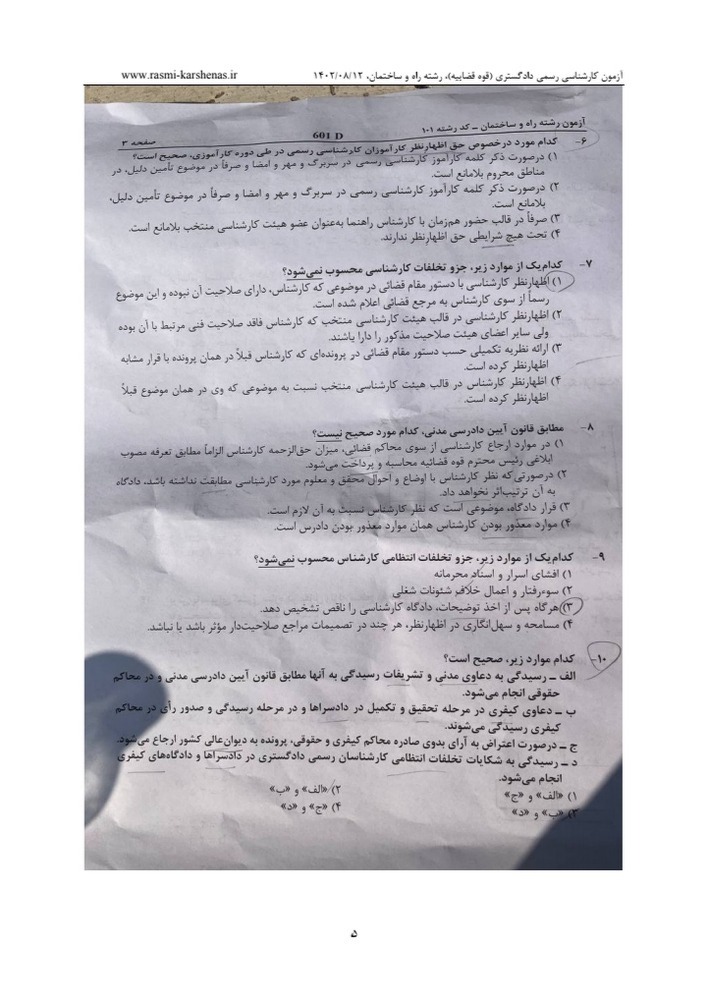 آزمون کارشناسی رسمی دادگستری (قوه قضاییه)، رشته راه و ساختمان، ۱۴۰۲/۰۸/۱۲ www.rasmi-karshenas.ir
آزمون رشته راه و ساختمان ـ کد رشته ۱۰۱ 601 D صفحه ۳
۶- کدام مورد درخصوص حق اظهارنظر کارآموزان کارشناسی رسمی در طی دوره کارآموزی، صحیح است؟
۱) درصورت ذکر کلمه کارآموز کارشناسی رسمی در سربرگ و مهر و امضا و صرفاً در موضوع تأمین دلیل، در
مناطق محروم بلامانع است.
۲) درصورت ذکر کلمه کارآموز کارشناسی رسمی در سربرگ و مهر و امضا و صرفاً در موضوع تأمین دلیل،
بلامانع است.
۳) صرفاً در قالب حضور هم‌زمان با کارشناس راهنما به‌عنوان عضو هیئت کارشناسی منتخب بلامانع است.
۴) تحت هیچ شرایطی حق اظهارنظر ندارند.
۷- کدام‌یک از موارد زیر، جزو تخلفات کارشناسی محسوب نمی‌شود؟
۱) اظهارنظر کارشناسی با دستور مقام قضائی در موضوعی که کارشناس، دارای صلاحیت آن نبوده و این موضوع
رسماً از سوی کارشناس به مرجع قضائی اعلام شده است.
۲) اظهارنظر کارشناسی در قالب هیئت کارشناسی منتخب که کارشناس فاقد صلاحیت فنی مرتبط با آن بوده
ولی سایر اعضای هیئت صلاحیت مذکور را دارا باشند.
۳) ارائه نظریه تکمیلی حسب دستور مقام قضائی در پرونده‌ای که کارشناس قبلاً در همان پرونده با قرار مشابه
اظهارنظر کرده است.
۴) اظهارنظر کارشناس در قالب هیئت کارشناسی منتخب نسبت به موضوعی که وی در همان موضوع قبلاً
اظهارنظر کرده است.
۸- مطابق قانون آیین دادرسی مدنی، کدام مورد صحیح نیست؟
۱) در موارد ارجاع کارشناسی از سوی محاکم قضائی، میزان حق‌الزحمه کارشناس الزاماً مطابق تعرفه مصوب
ابلاغی رئیس محترم قوه قضائیه محاسبه و پرداخت می‌شود.
۲) درصورتی‌که نظر کارشناس با اوضاع و احوال محقق و معلوم مورد کارشناسی مطابقت نداشته باشد، دادگاه
به آن ترتیب‌اثر نخواهد داد.
۳) قرار دادگاه، موضوعی است که نظر کارشناس نسبت به آن لازم است.
۴) موارد معذور بودن کارشناس همان موارد معذور بودن دادرس است.
۹- کدام‌یک از موارد زیر، جزو تخلفات انتظامی کارشناس محسوب نمی‌شود؟
۱) افشای اسرار و اسناد محرمانه
۲) سوءرفتار و اعمال خلاف شئونات شغلی
۳) هرگاه پس از اخذ توضیحات، دادگاه کارشناسی را ناقص تشخیص دهد.
۴) مسامحه و سهل‌انگاری در اظهارنظر، هر چند در تصمیمات مراجع صلاحیت‌دار مؤثر باشد یا نباشد.
۱۰- کدام موارد زیر، صحیح است؟
الف ـ رسیدگی به دعاوی مدنی و تشریفات رسیدگی به آنها مطابق قانون آیین دادرسی مدنی و در محاکم
حقوقی انجام می‌شود.
ب ـ دعاوی کیفری در مرحله تحقیق و تکمیل در دادسراها و در مرحله رسیدگی و صدور رأی در محاکم
کیفری رسیدگی می‌شوند.
ج ـ درصورت اعتراض به آرای بدوی صادره محاکم کیفری و حقوقی، پرونده به دیوان‌عالی کشور ارجاع می‌شود.
د ـ رسیدگی به شکایات تخلفات انتظامی کارشناسان رسمی دادگستری در دادسراها و دادگاه‌های کیفری
انجام می‌شود.
۱) «الف» و «ج» ۲) «الف» و «ب»
۳) «ب» و «د» ۴) «ج» و «د»
۵